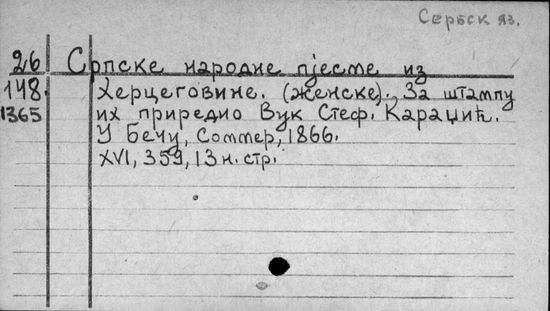 Сербск яз.
26 Српске народне пјесме из
148. Херцеговине. (Женске). За штампу
1365 их приредио Вук Стеф. Караџић.
У Бечу, Соммер, 1866.
XVI, 359, 13 н. стр.